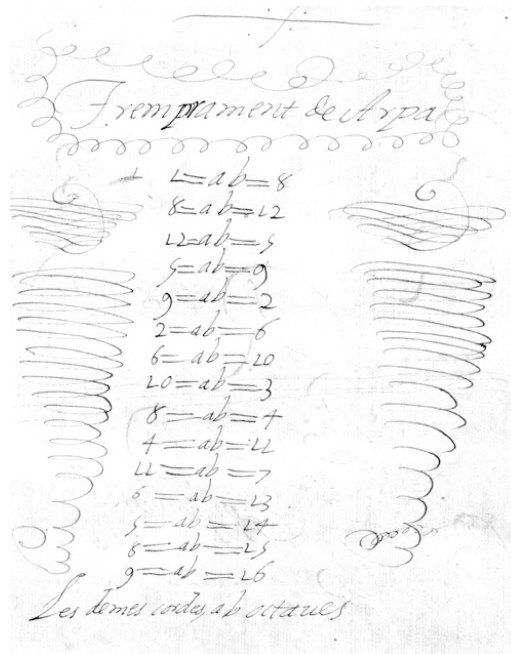 Tremprament de Arpa
1 1=ab=8
8=ab=12
12=ab=5
5=ab=9
9=ab=2
2=ab=6
6=ab=10
10=ab=3
8=ab=4
4=ab=11
11=ab=7
6=ab=13
5=ab=14
8=ab=15
9=ab=16
Les demes cordas ab octaues